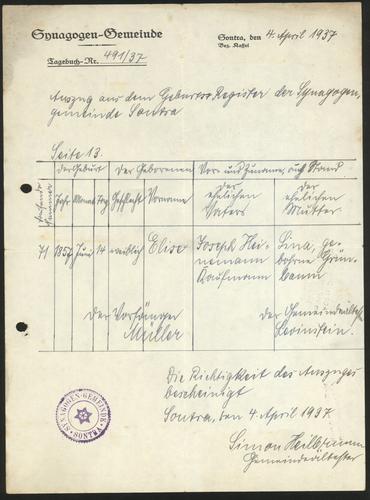 Synagogen-Gemeinde
Sontra, den 4. April 1937
Bez. Kassel
Tagebuch-Nr. 491/37
Auszug aus dem Geburts Register der Synagogen,
gemeinde Sontra
Seite 13.
laufende Nummer
der Geburt
Der Geborenen
Vor- und Zuname, auch Stand
Jahr Monat Tag
Geschlecht Vorname
der ehelichen Vaters
der ehelichen Mutter
71 1857 Juni 14 weiblich Elise
Joseph Hei-
nemann
Kaufmann
Lina, ge-
borne Grün-
baum
der Vorsänger
Müller
der Gemeindeälteste
Levinstein.
Die Richtigkeit des Auszuges
bescheinigt
Sontra, den 4. April 1937
Simon Heilbrunn
Gemeindeältester
SYNAGOGEN-GEMEINDE
SONTRA